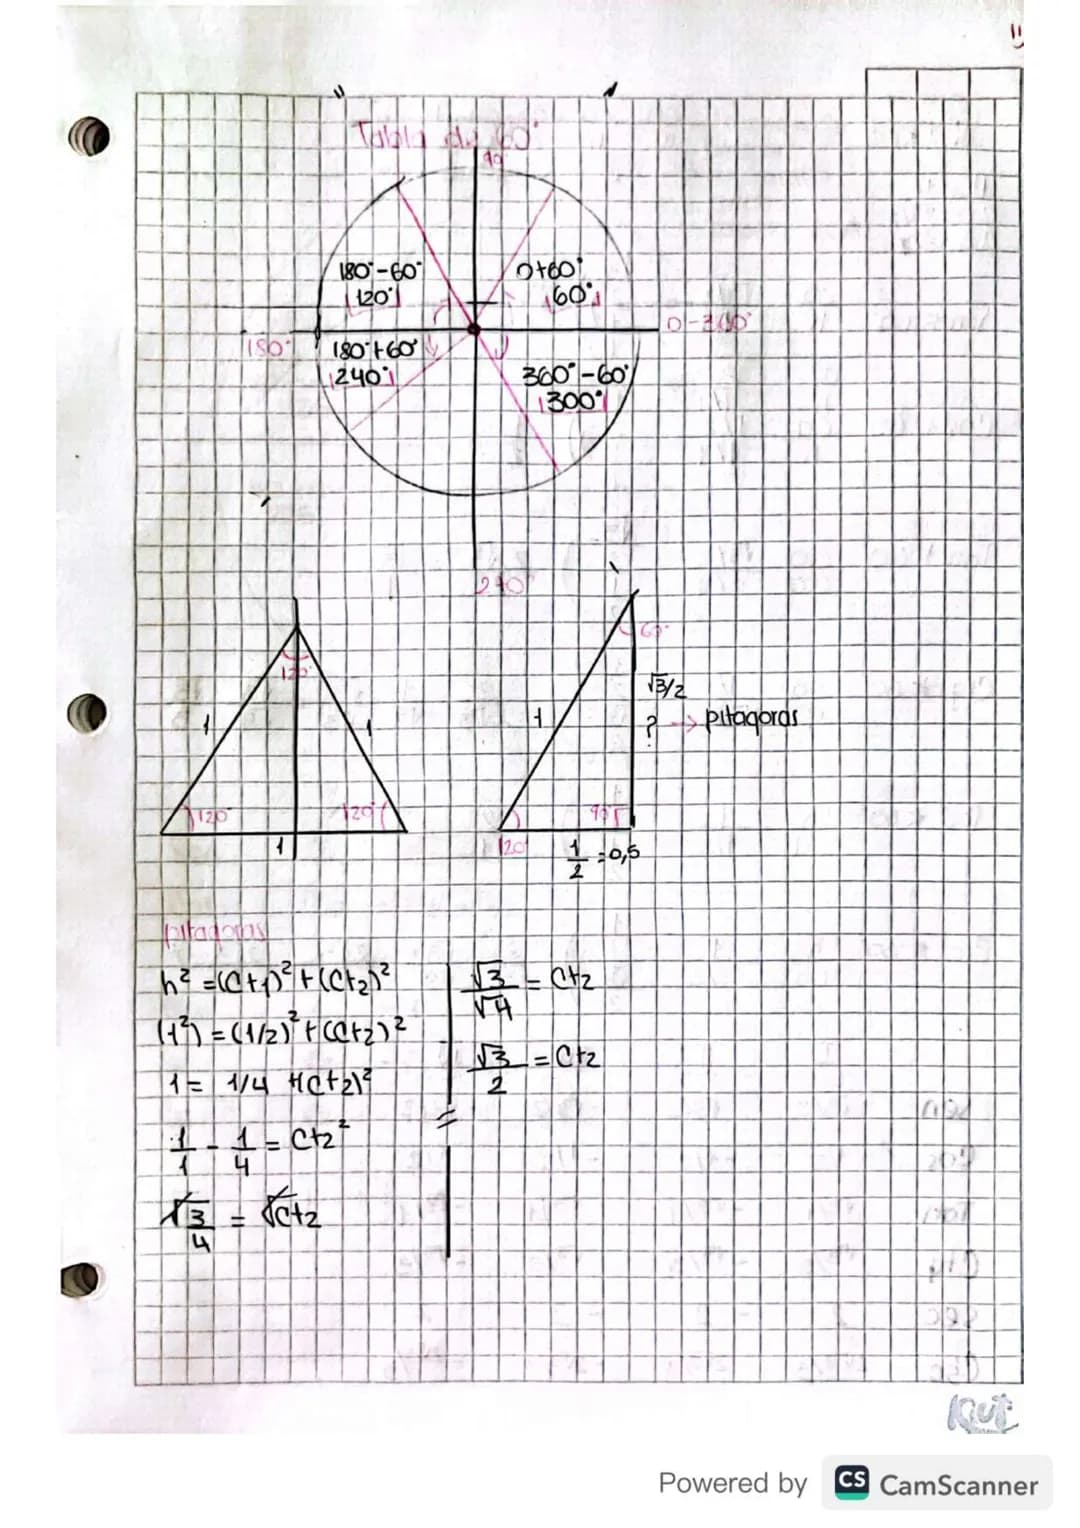 Tabla de 60°
90°
180°-60°
120°
0+60°
60°
0-360°
180°
180°+60°
240°
360°-60°
300°
270°
120°
1
1
120°
120°
1
60°
√3/2
1
? → pitagoras
90°
120°
1/2 = 0,5
pitagoras
h² = (Ct1)² + (Ct2)²
(1²) = (1/2)² + (Ct2)²
1 = 1/4 + (Ct2)²
1/1 - 1/4 = Ct2²
√3/4 = √Ct2
√3/√4 = Ct2
√3/2 = Ct2
Kut
Powered by CS CamScanner